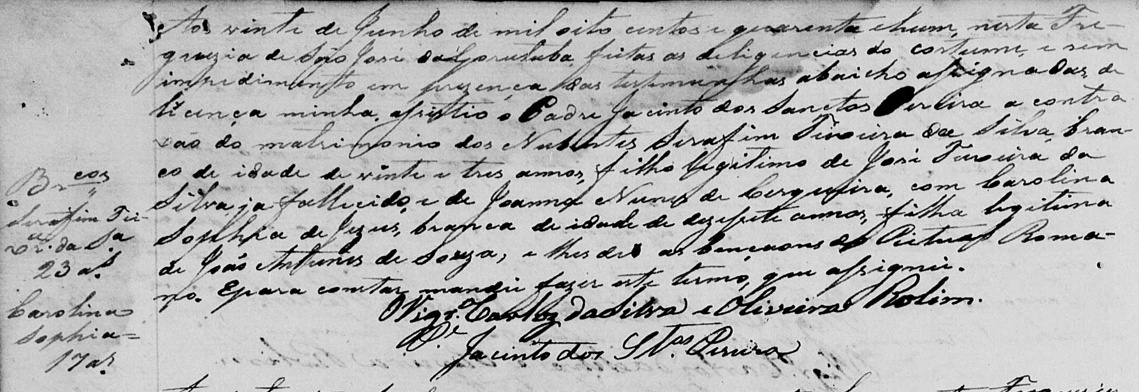 Aos vinte de Junho de mil oito centos e quarenta e hum, nesta Fre-
guezia de São José do Gorutuba feitas as deligencias do costume, e sem
impedimento em prezença das testemunhas abaicho assignadas, de
licença minha, assistio o Padre Jacinto dos Sanctos Pereira a contra-
cão do matrimonio dos Nubentes Serafim Teixeira da Silva, bran-
co de idade de vinte e tres annos, filho legitimo de José Teixeira da
Silva, ja fallecido, e de Joanna Nunes de Cerqueira, com Carolina
Sophia de Jezus, branca de idade de dezesete annos, filha legitima
de João Antunes de Souza, e lhes deo as bençaons do Rictual Roma-
no. E para constar mandei fazer este termo, que assignei.
O Vigr.º Carlos da Silva e Oliveira Rolim.
P.e Jacinto dos S.tos Pereira
Br.cos
Serafim Tei-
xr.ª da S.ª
23 a.s
Carolina
Sophia=
17 a.s